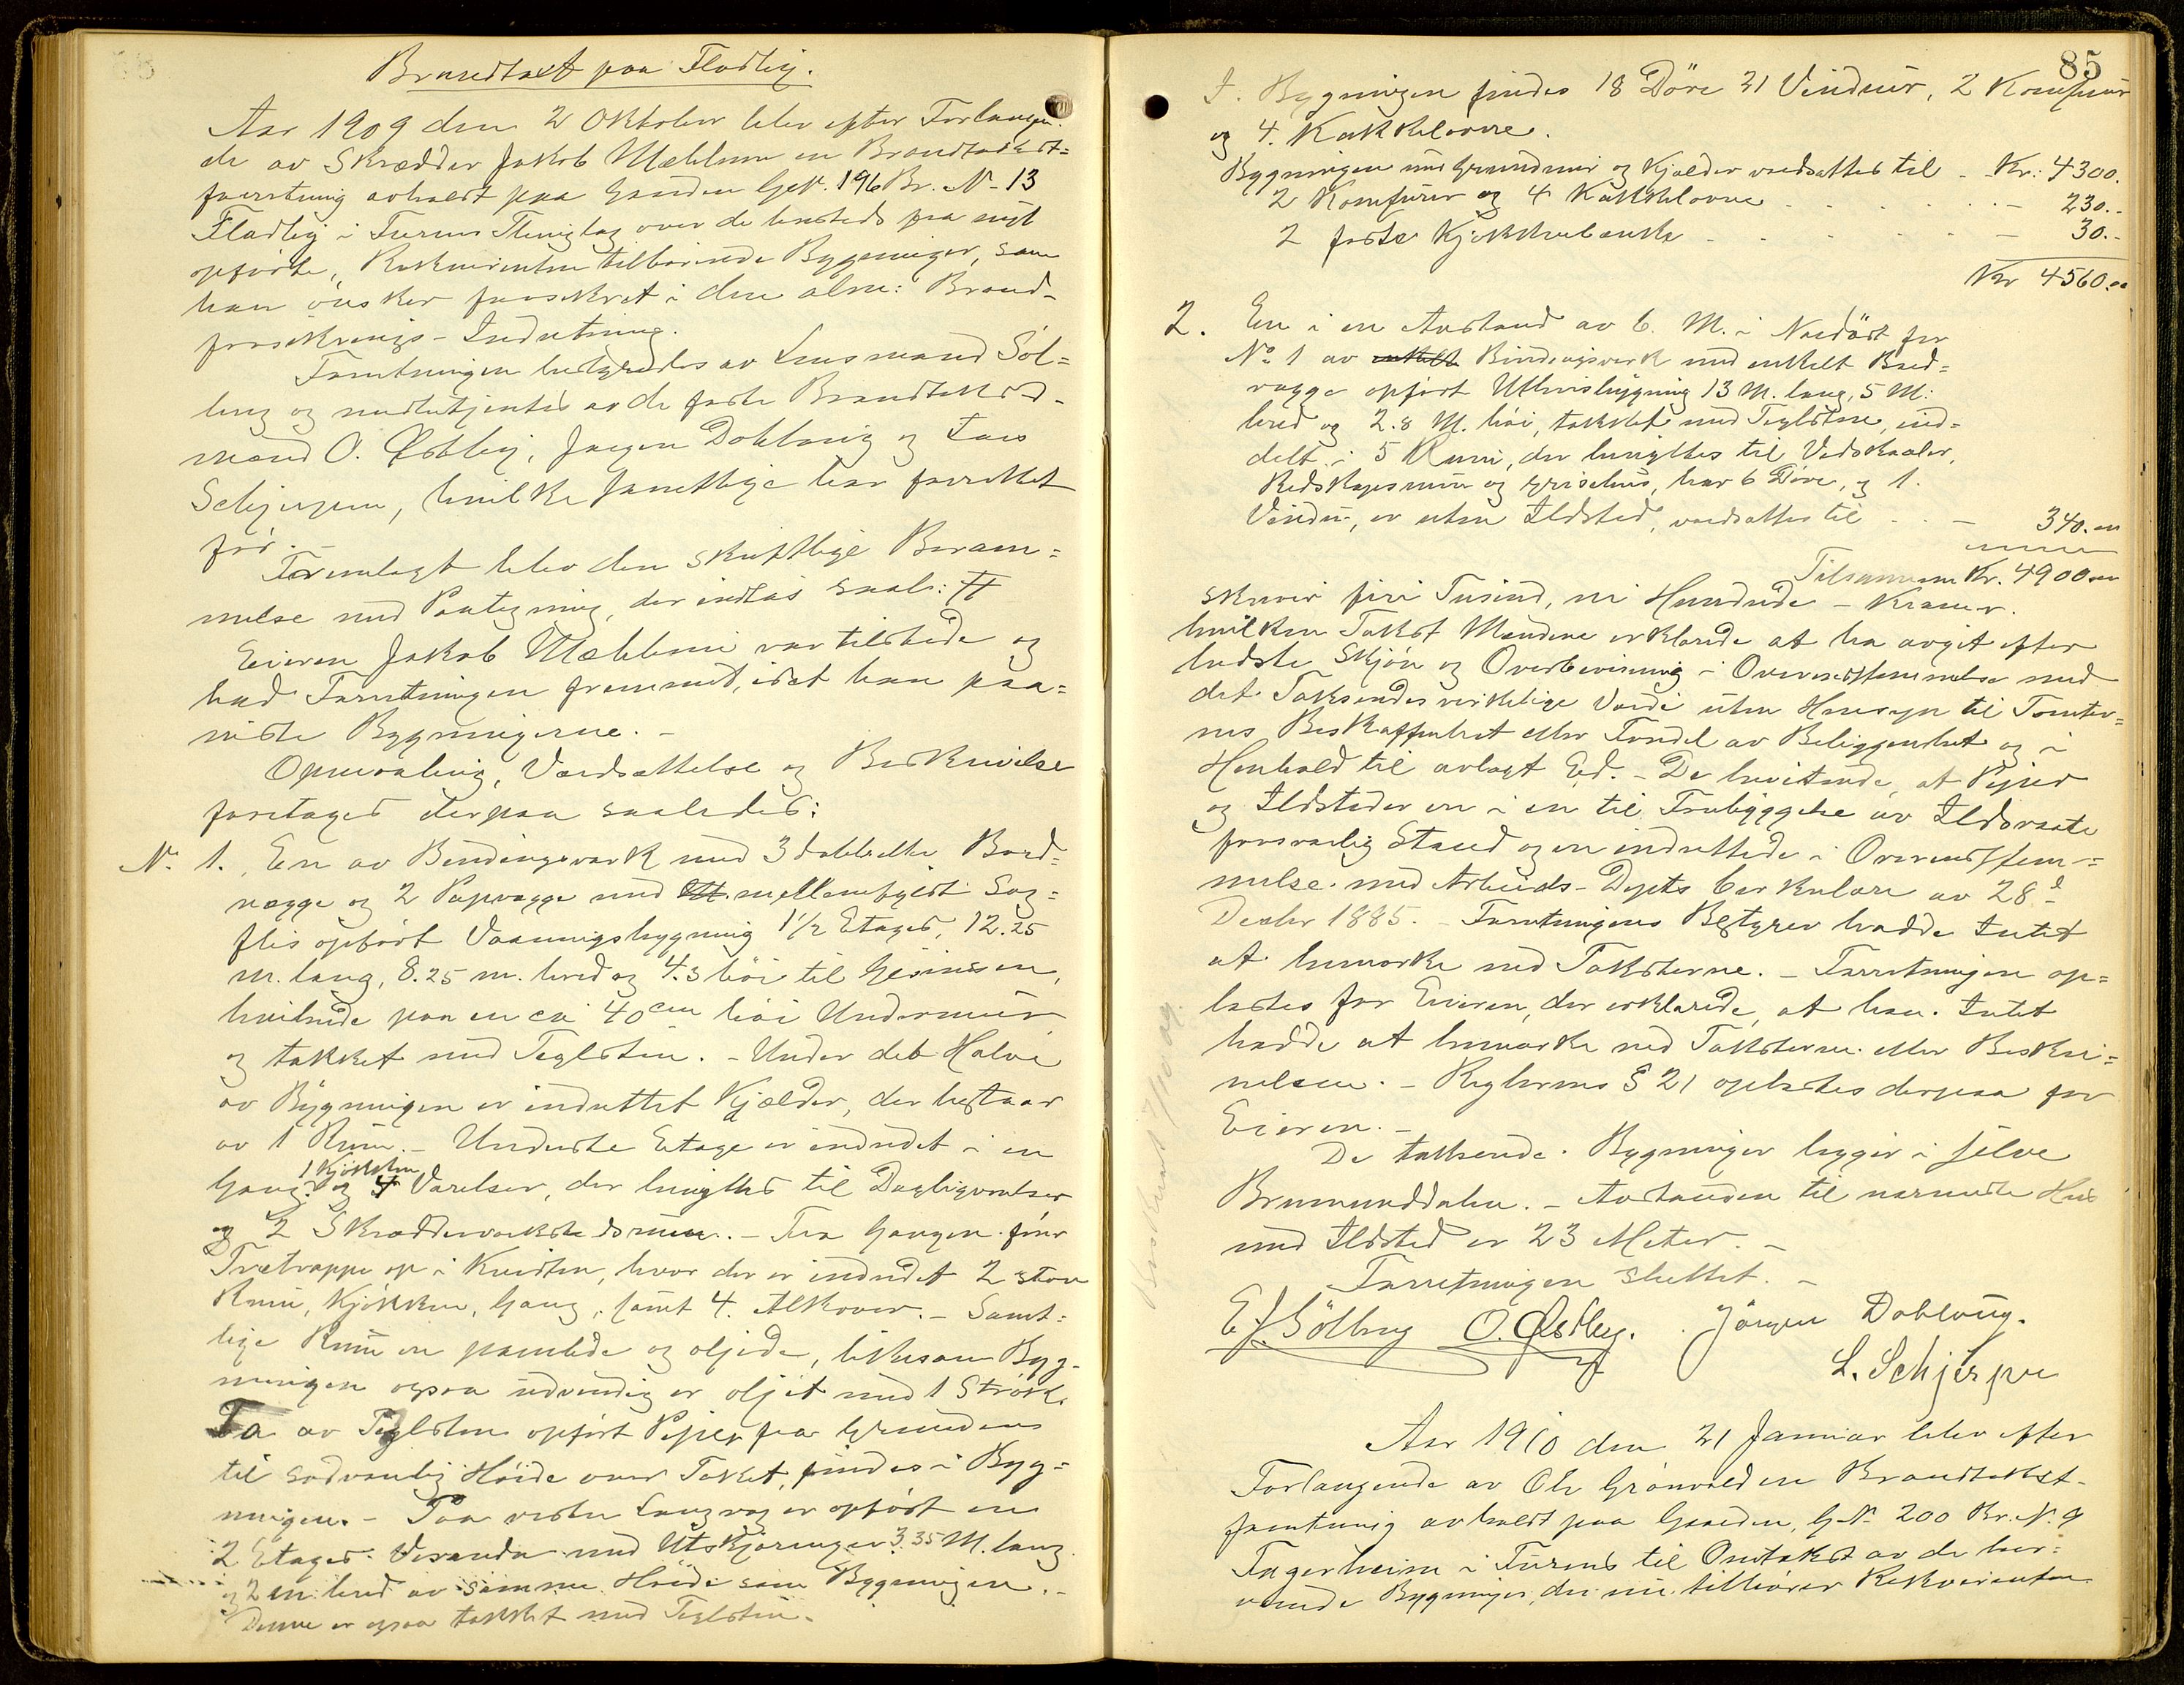 Brandtaxt paa Fladbÿ.
Aar 1909 den 2 Oktober blev efter Forlangen-
de av Skrædder Jakob Mælum en Brandtakst=
forretning avholdt paa Gaarden GN. 196 Br. N. 13
Fladbÿ i Furnes Thinglag over de hersteds fra nyt
opførte, Rekvirenten tilhørende Bygninger, som
han ønsker forsikret i den alm: Brand-
forsikrings-Indretning.
Forretningen bestyredes av Lensmand Söl=
berg og medbetjentes av de faste Brandtakst-
mænd O. Østby, Jørgen Doblaug og Lars
Schjerpen, hvilke samtlige har forrettet
för.
Fremlagt blev den skriftlige Beram=
melse med Paategning, der indtas saal: #
Eieren Jakob Mælum var tilstede og
bad Forretningen fremmet, idet han paa=
viste Bygningerne. -
Opmaaling, Værdsættelse og Beskrivelse
foretages derpaa saaledes:
No. 1. En av Bindingsverk med 3 dobbelte Bord=
vægge og 2 Papvægge med mellemfyldt Sag=
flis opført Vaaningsbygning 1 1/2 Etages, 12.25
m. lang, 8.25 m. bred og 4.3 höi til Gesimsen,
hvilende paa en ca 40 cm höi Undermur
og tækket med Teglsten. - Under det Halve
av Bygningen er indrettet Kjælder, der bestaar
av 1 Rum. - Underste Etage er indredet i en
Gang, 1 Kjökken og 4 Værelser, der benyttes til Dagligværelser
og 2 Skrædderverkstedsrum. - Fra Gangen förer
Trætrappe op i Kvisten, hvor der er indredet 2 store
Rum, Kjökken, Gang, samt 4. Alkover. - Samt=
lige Rum er panelede og oljede, likesom Byg-
ningen ogsaa udvendig er oljet med 1 Strök.
To av Teglsten opfört Piper fra Grunden
til sedvanlig Höide over Taket, findes i Byg=
ningen. - Paa vestre Langvæg er opfört en
2 Etages Veranda med Utskjæringer 3.35 M. lang
og 2 m. bred av samme Höide som Bygningen. -
Denne er ogsaa tækket med Teglsten.
85
I. Bygningen findes 18 Döre 21 Vinduer, 2 Komfurer
og 4. Kakkelovne.
Bygningen med Grundmur og Kjælder værdsættes til - Kr: 4300.
2 Komfurer og 4 Kakkelovne - 230.-
2 faste Kjökkenbænke - 30.-
Kr 4560.00
2. En i en Avstand av 6. M. i Nordöst for
No 1 av Bindingsverk med enkelt Bord=
vægge opfört Uthusbygning 13 M. lang, 5 M:
bred og 2.8 M. höi, tækket med Teglsten, ind=
delt i 5 Rum, der benyttes til Vedskaaler,
Redskapsrum og Grisehus, har 6 Döre, og 1.
Vindu, er uten Ildsted, værdsættes til - 340.00
Tilsammen Kr. 4900.00
skriver fire Tusind, ni Hundrede - Kroner.
hvilken Takst Mændene erklærede at ha avgit efter
bedste Skjön og Overbevisning i Overensstemmelse med
det Takseredes virkelige Værdi uten Hensyn til Tomter=
nes Beskaffenhet eller Fordel av Beliggenhet og i
Henhold til avlagt Ed. - De bevitnede, at Piper
og Ildsteder er i en til Forebyggelse av Ildsvaade
forsvarlig Stand og er indrettede i Overensstem=
melse med Arbeids-Depts Cirkulære av 28d
Decbr 1885. - Forretningens Bestyrer hadde Intet
at bemærke ved Taksterne. - Forretningen op=
læstes for Eieren, der erklærede, at han Intet
hadde at bemærke ved Taksterne eller Beskri=
velsen. - Reglernes § 21 oplæstes derpaa for
Eieren. -
De takserede Bygninger ligger i selve
Brumunddalen. - Avstanden til nærmeste Hus
med Ildsted er 23 Meter. -
Forretningen sluttet. -
E. J. Sölberg O. Østby. Jörgen Doblaug.
L. Schjerpen
Aar 1910 den 21 Januar blev efter
Forlangende av Ole Grönvold en Brandtakst-
forretning avholdt paa Gaarden, GN. 200 Br. N. 9
Fagerheim i Furnes til Omtakst av de her=
værende Bygninger, der nu tilhører Rekvirenten